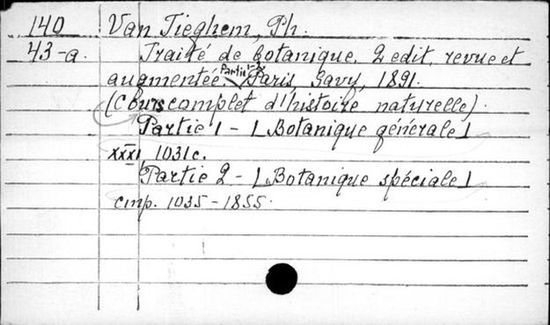 140 Van Tieghem, Ph.
43-a. Traité de botanique. 2 edit, revue et
augmentée. Partie 1-2 Paris Savy, 1891.
(Cours complet d'histoire naturelle).
Partie 1 - [Botanique générale]
XXXI, 1031 c.
Partie 2 - [Botanique spéciale]
cmp. 1035-1855.